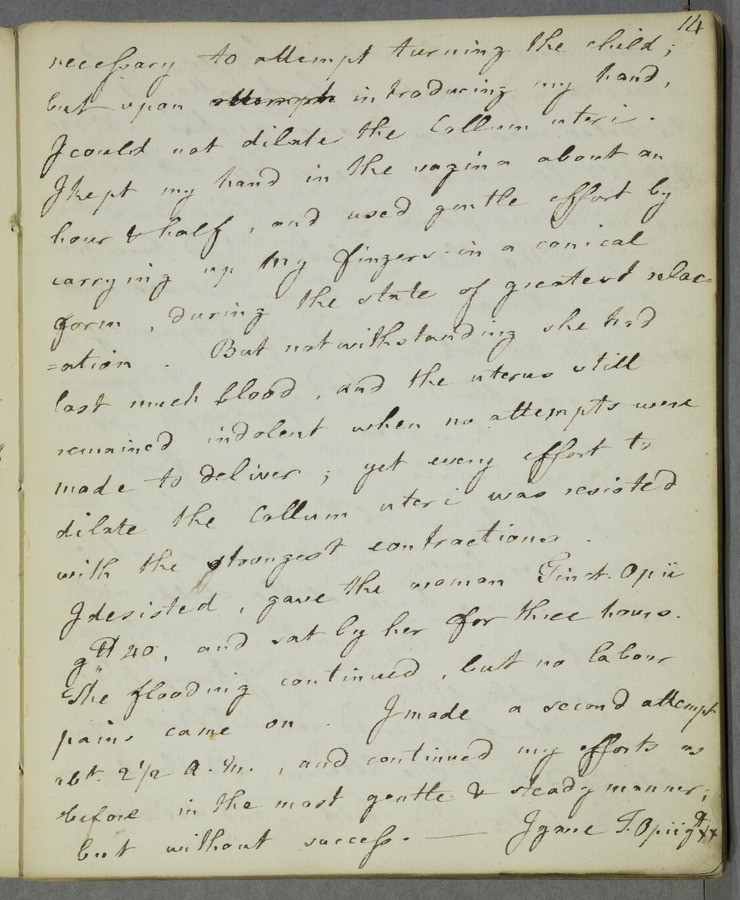 14
necessary to attempt turning the child;
but upon attempt introducing my hand,
I could not dilate the Collum uteri.
I kept my hand in the vagina about an
hour & half, and used gentle effort by
carrying up my fingers in a conical
form, during the state of greatest relax=
=ation. But notwithstanding she had
lost much blood, and the uterus still
remained indolent when no attempts were
made to deliver; yet every effort to
dilate the Collum uteri was resisted
with the strongest contractions.
I desisted, gave the woman Tinct. Opii
gtt 40, and sat by her for three hours.
The flooding continued, but no labour
pains came on. I made a second attempt
abt. 2 1/2 A.M., and continued my efforts as
before in the most gentle & steady manner;
but without success. — I gave T. Opii gtt xx